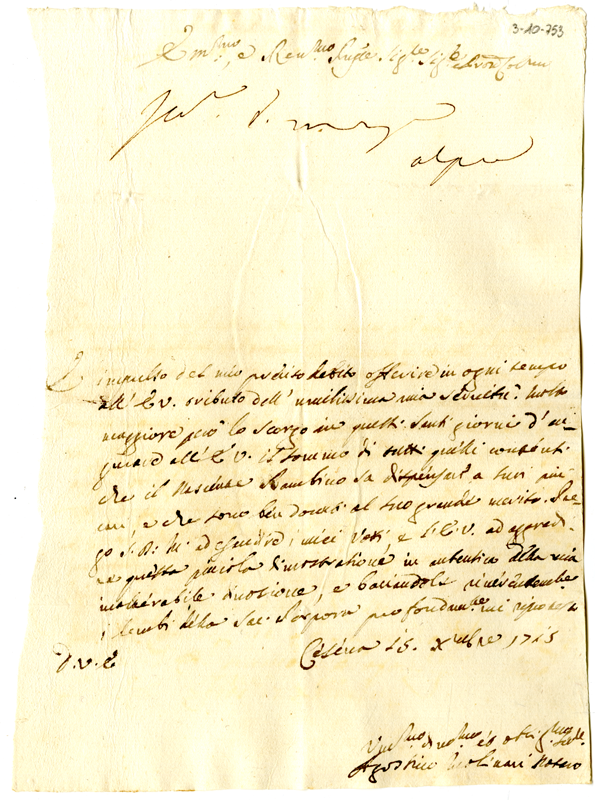 3-10-753
Em.mo, e Rev.mo Sig.re Sig.re
impulso del mio preciso debito offerire in ogni tempo
all' E.V. tributo dell' umilissima mia servitù. Molto
maggiore però lo scorgo in questi Santi giorni d'au-
gurare all' E.V. il sommo di tutti quelli contenti
che il Nascente Bambino sa dispensare a suoi più
cari, e che sono ben dovuti al suo grande merito. Pre-
go S.D.M. ad esaudire i miei Voti, e l'E.V. ad aggradi-
re questa piccola dimostratione in autentica della mia
inalterabile divotione, e baciandole riverentem.e
i lembi della Sac. Porpora profondam.te mi riprotesto
D.V.E.
Cesena 15. Xmbre 1715
Um.mo Div.mo ed Oblig.mo
Agostino Molinari